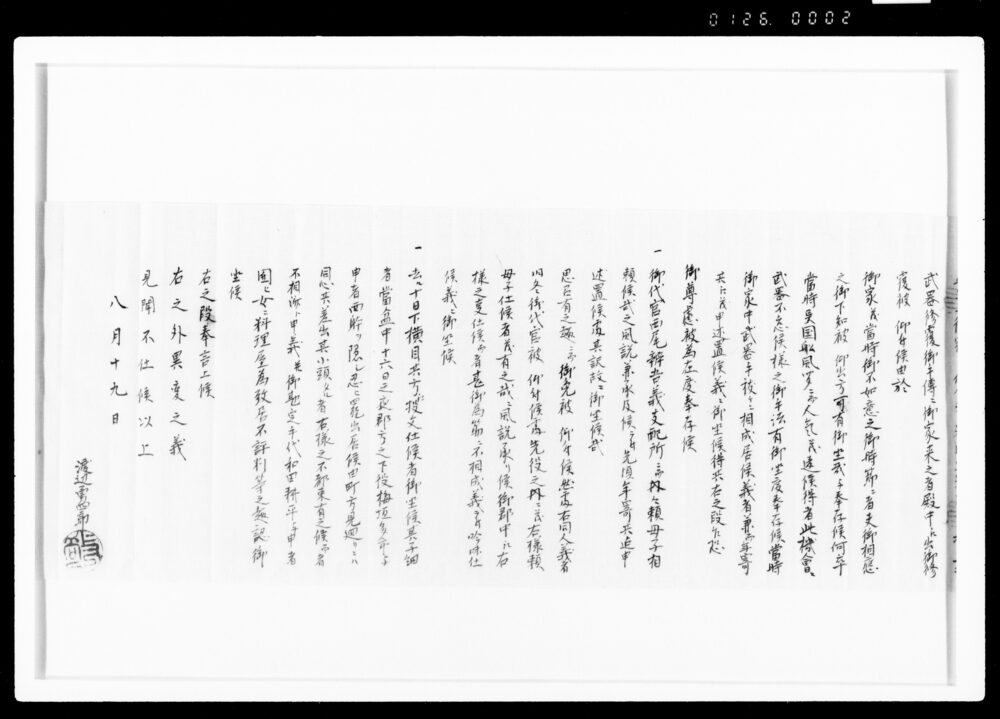 0126. 0002
武器修覆御手傳ニ御家来之者殿中江出御修
覆被 仰付候由於
御家ハ當時御不如意之御時節ニ者夫御相應
之御下知被 仰出方可有御坐哉与奉存候何卒
當時異国船風聞ニ而人気茂迷候得者此機會ニ
武器不怠候様之御手法有御坐度奉存候當時
御家中武器手被ニ相成居候義者兼而年寄
共江茂申述置候義ニ御坐候得共右之段乍恐
御尊慮被為在度奉存候
一 御代官西尾辨吉義支配所ニ而内々頼母子相
頼候哉之風説兼承及候ニ付先頃年寄共迄申
述置候處其訳故ニ御坐候哉
思召有之趣ニ而御免被 仰付候然處右同人義者
旧冬御代官被 仰付候處先役之内ニ茂右様頼
母子仕候者義有之哉ニ風説承り候御郡中江右
様之変仕候而者甚御為筋ニ不相成義ニ付吟味仕
候義ニ御坐候
一 去ル十日下横目共方投文仕候者御坐候其子細
者當盆中十六日之夜郡方之下役梅垣
申者面躰ヲ隠し忍ニ罷出居候由町方見廻り
同心共差出其小頭
不相添申義共御勘定手代和田耕平与申者
圍し女ニ料理屋為致居不評判等之趣認御
坐候
右之段奉言上候
右之外異変之義
見聞不仕候以上
八月十九日
渡辺